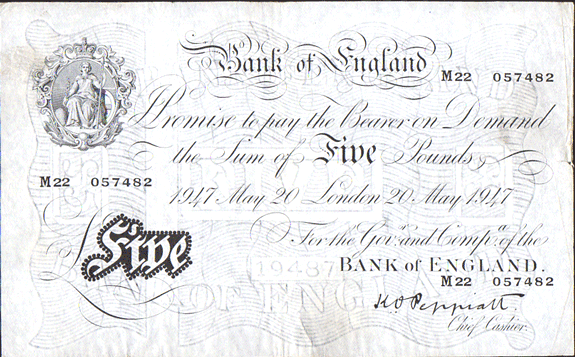 Bank of England
M22 057482
I Promise to pay the Bearer on Demand
the Sum of Five Pounds
M22 057482
1947 May 20 London 20 May 1947
For the Gov.r and Comp.a of the
BANK of ENGLAND.
M22 057482
Five
K O Peppiatt.
Chief Cashier.